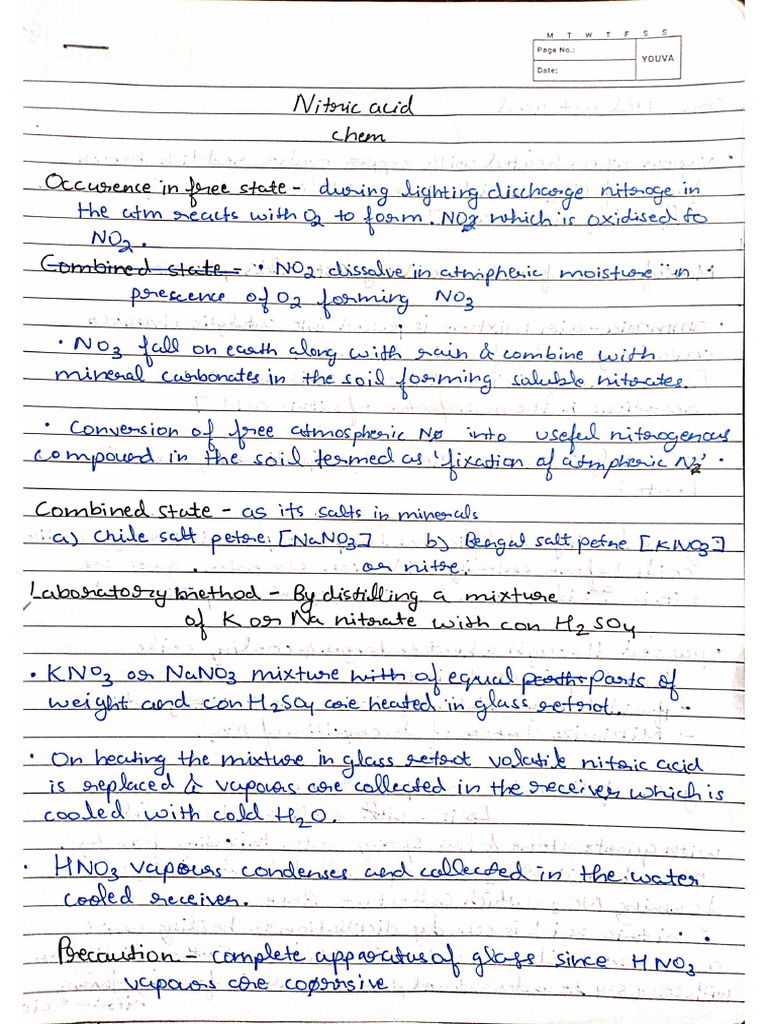 M T W T F S S
Page No.:
YOUVA
Date:
Nitoric acid
chem
Occurence in free state - during lighting discharge nitroge in
the atm reacts with O2 to form. NO2 which is oxidised to
NO2.
Combined state - • NO2 dissolve in atmpheric moisture in
prescence of O2 forming NO3
• NO3 fall on earth along with rain & combine with
mineral carbonates in the soil forming soluble nitrates.
• Conversion of free atmospheric No into useful nitrogenous
compound in the soil termed as 'fixation of atmpheric N2'
Combined state - as its salts in minerals
a) Chile salt petre [NaNO3] b) Bengal salt petre [KNO3]
or nitre.
Laboratory method - By distilling a mixture
of K or Na nitrate with con H2SO4
• KNO3 or NaNO3 mixture with of equal parts of
weight and con H2SO4 are heated in glass retrot.
• On heating the mixture in glass retrot volatile nitric acid
is replaced & vapours are collected in the receiver which is
cooled with cold H2O.
• HNO3 vapours condenses and collected in the water
cooled receiver.
Precaution - complete apparatus of glass since HNO3
vapours are corrsive